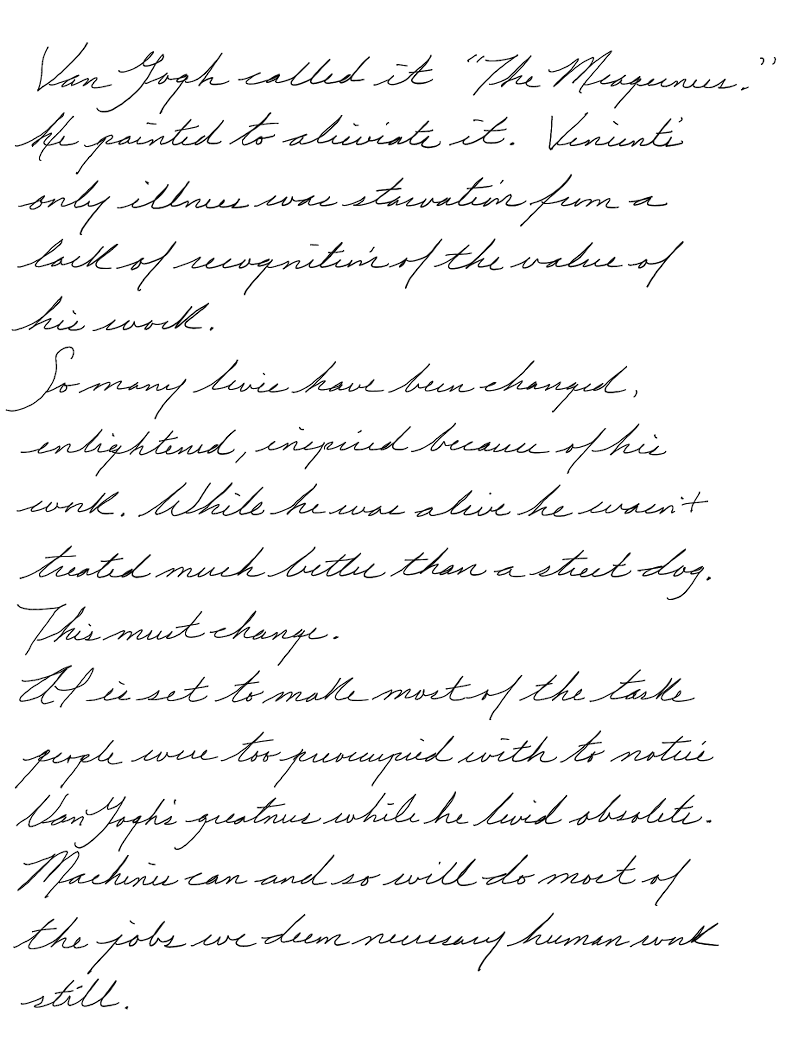 Van Gogh called it "The Meagerness."
He painted to aleviate it. Vincent's
only illness was starvation from a
lack of recognition of the value of
his work.
So many lives have been changed,
enlightened, inspired because of his
work. While he was alive he wasn't
treated much better than a street dog.
This must change.
AI is set to make most of the tasks
people were too preoccupied with to notice
Van Gogh's greatness while he lived obsolete.
Machines can and so will do most of
the jobs we deem necessary human work
still.